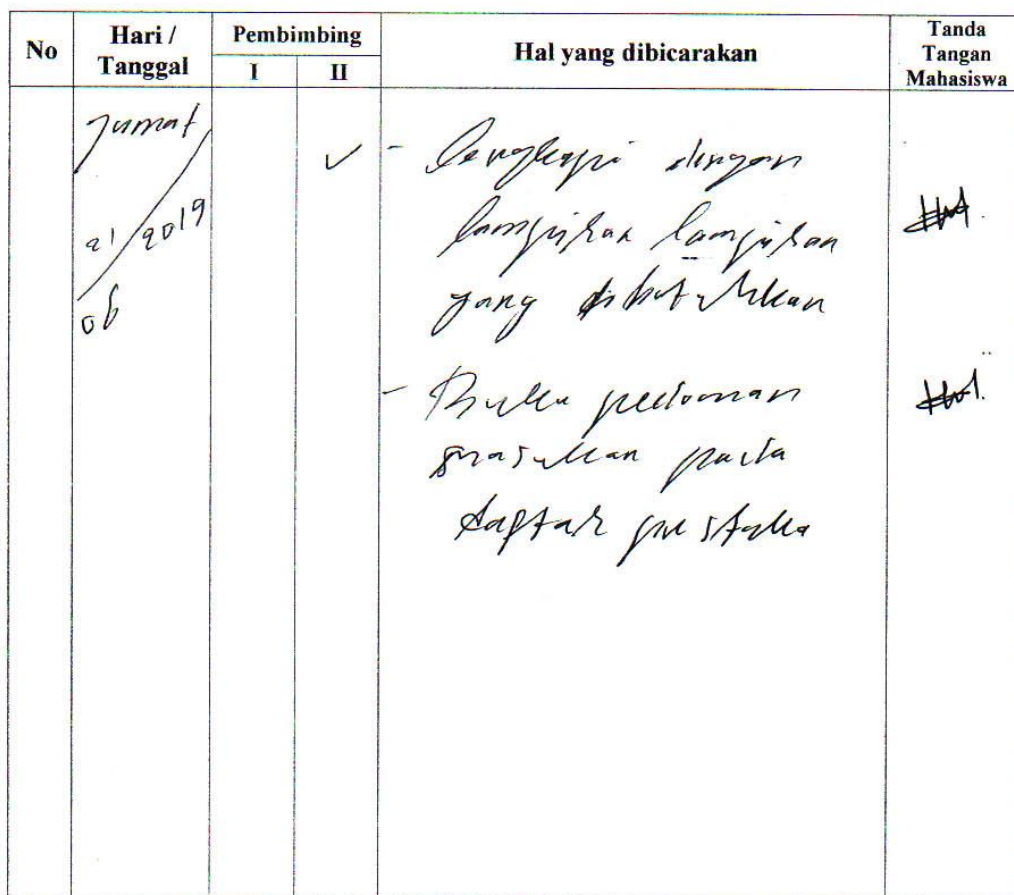 No
Hari /
Tanggal
Pembimbing
I
II
Hal yang dibicarakan
Tanda
Tangan
Mahasiswa
Jumat
21/2019
06
✓
- lengkapi dengan
lampiran lampiran
yang dibutuhkan
- Buku pedoman
masukan pada
daftar pustaka